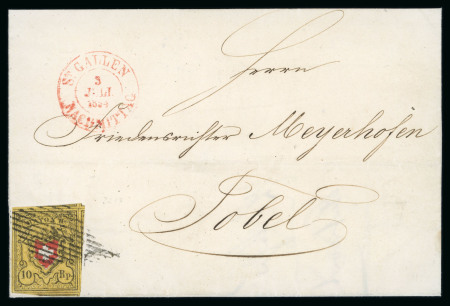 St GALLEN
3
JULI
NACHMITTAG
Herrn
Friedensrichter Meyerhofen
Tobel
10 Rp.